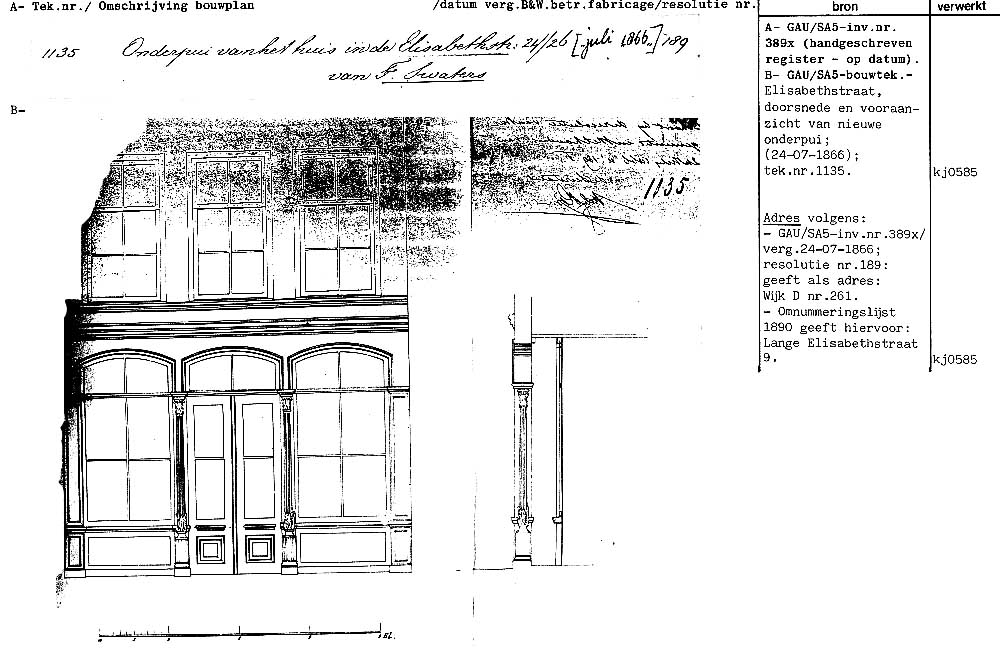 A- Tek.nr./ Omschrijving bouwplan
/datum verg.B&W.betr.fabricage/resolutie nr.
bron
verwerkt
1135 Onderpui van het huis in de Elisabethstr: 24/26 [juli 1866.] 189
van F. Swaters
B-
1135
EL.
A- GAU/SA5-inv.nr.
389x (handgeschreven
register - op datum).
B- GAU/SA5-bouwtek.-
Elisabethstraat,
doorsnede en vooraan-
zicht van nieuwe
onderpui;
(24-07-1866);
tek.nr.1135.
kj0585
Adres volgens:
- GAU/SA5-inv.nr.389x/
verg.24-07-1866;
resolutie nr.189:
geeft als adres:
Wijk D nr.261.
- Omnummeringslijst
1890 geeft hiervoor:
Lange Elisabethstraat
9.
kj0585